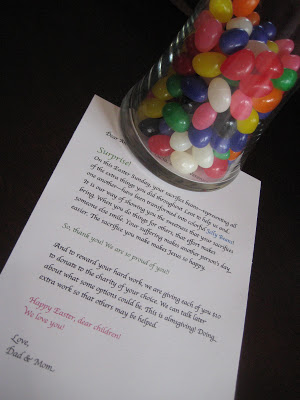 Dear
Surprise!
On this Easter Sunday, your sacrifice beans—representing all
of the extra things you did throughout Lent to help us and
one another—have been transformed into colorful Jelly Beans!
It is our way of showing you the sweetness that your sacrifices
bring. When you do things for others, that effort makes
someone else smile. Your suffering makes another person's day
easier. The sacrifice you make makes Jesus so happy.
So, thank you! We are so proud of you!!
And to reward your hard work, we are giving each of you $10
to donate to the charity of your choice. We can talk later
about what some options could be. This is almsgiving! Doing
extra work so that others may be helped.
Happy Easter, dear children!
We love you!
Love,
Dad & Mom